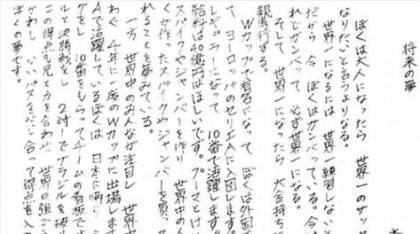 将来の夢
ぼくは大人になったら 世界一のサッカ
なりたいと言うよりなる。
世界一になるには 世界一練習しないと
だから 今 ぼくはガンバっている。今
れどガンバって 必ず世界一になる。
そして 世界一になったら 大金持ちに
親孝行する。
Wカップで有名になって ぼくは外国
て ヨーロッパのセリエAに入団します。
レギュラーになって 10番で活躍します。
給料は40億円はほしいです。プーマとけい
スパイクやジャンバーを作り 世界中の人
くが作ったスパイクやジャンバーを買
れることを夢みている。
一方 世界中のみんなが注目し 世界中
わぐ 4年に一度のWカップに出場しま
Aで活躍しているぼくは 日本に帰り
グをし 10番をもらってチームの看板で
ルと決勝戦をし 2対1でブラジルを破り
この得点も兄と力を合わせ 世界の強ご
かわし いいパスをだし合って得点を入
ぼくの夢です。